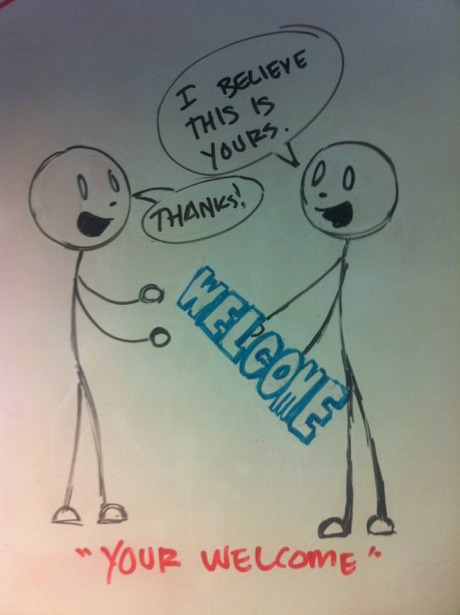 I BELIEVE
THIS IS
YOURS.
THANKS!
WELCOME
"YOUR WELCOME"